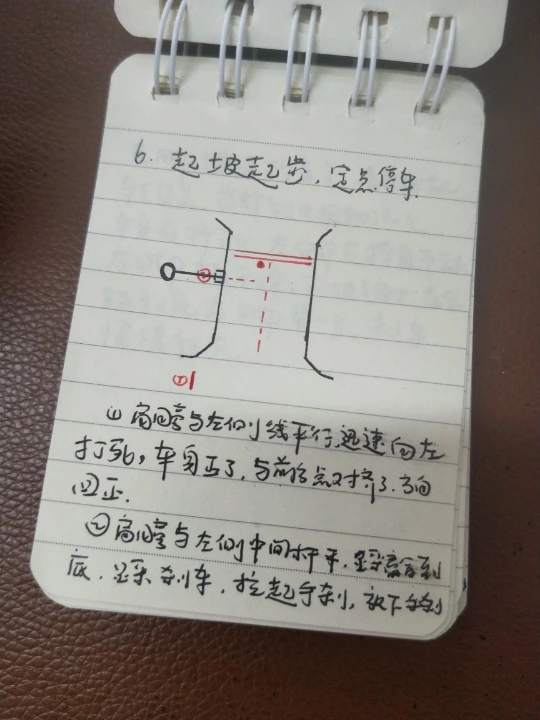 6. 起坡起步，定点停车
②
①
① 肩膀与左侧线平行，迅速向左
打死，车身正了，与前台点对齐了，方向
回正．
② 肩膀与左侧中间杆平，踩离合到
底，踩刹车，拉起手刹，放下手刹